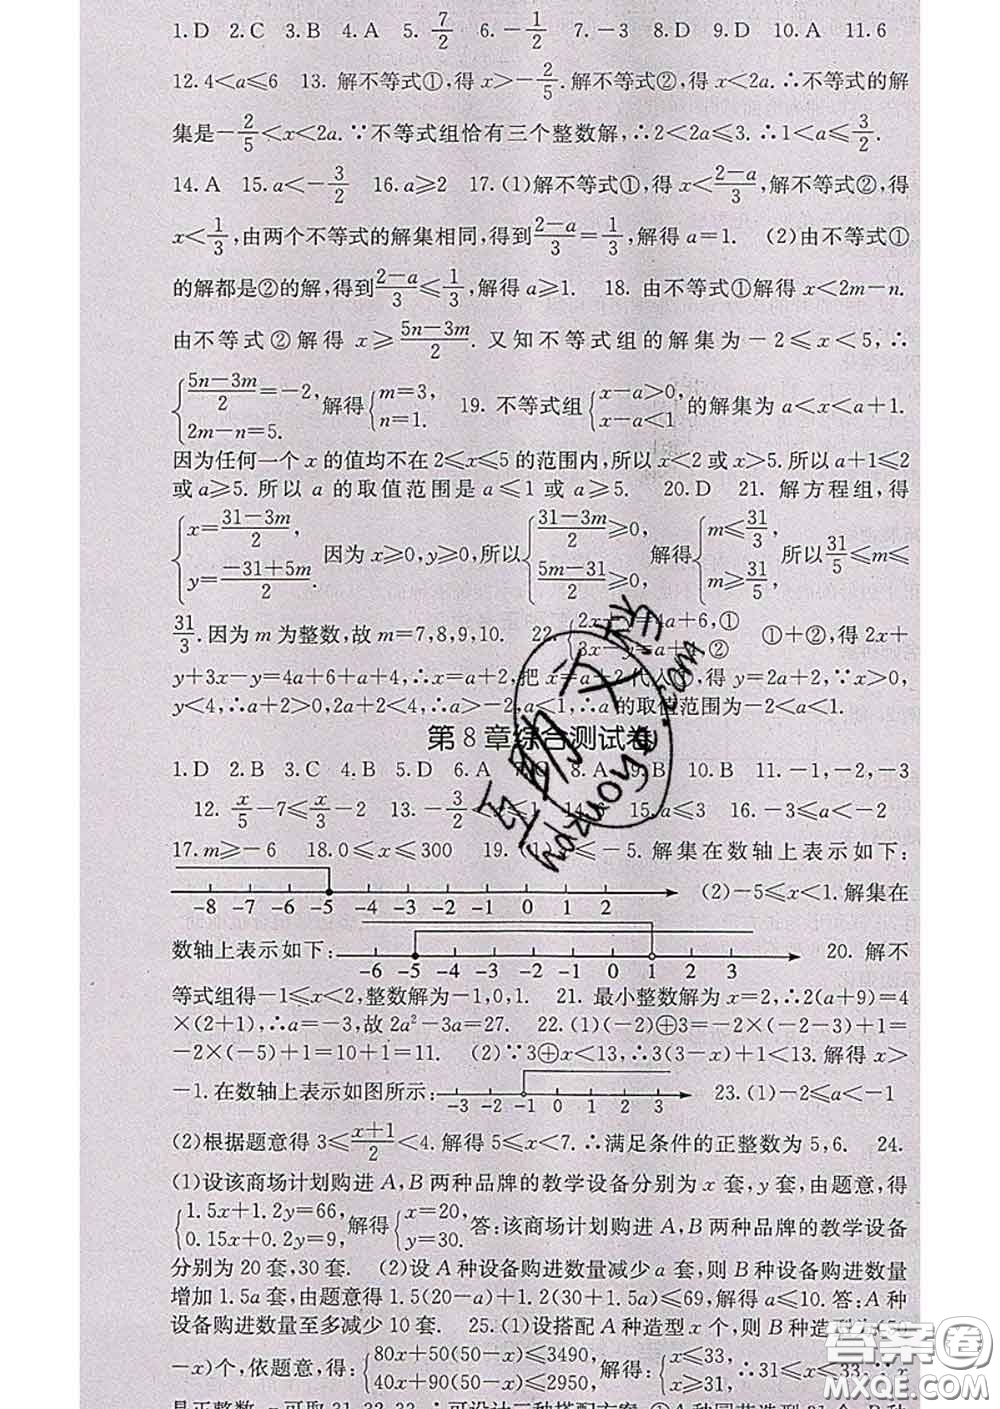 1.D 2.C 3.B 4.A 5.7/2 6.-1/2 7.-3 8.D 9.D 10.A 11.6
12.4<a≤6 13. 解不等式①,得 x>-2/5.解不等式②,得 x<2a.∴不等式的解
集是-2/5<x<2a.∵不等式组恰有三个整数解,∴2<2a≤3.∴1<a≤3/2.
14.A 15.a<-3/2 16.a≥2 17.(1)解不等式①,得 x<(2-a)/3,解不等式②,得
x<1/3,由两个不等式的解集相同,得到(2-a)/3=1/3,解得 a=1. (2)由不等式①
的解都是②的解,得到(2-a)/3≤1/3,解得 a≥1. 18. 由不等式①解得 x<2m-n.
由不等式②解得 x≥(5n-3m)/2. 又知不等式组的解集为-2≤x<5,∴
{(5n-3m)/2=-2, 2m-n=5. 解得{m=3, n=1. 19. 不等式组{x-a>0, x-a<1 的解集为 a<x<a+1.
因为任何一个 x 的值均不在 2≤x≤5 的范围内,所以 x<2 或 x>5.所以 a+1≤2
或 a≥5. 所以 a 的取值范围是 a≤1 或 a≥5. 20.D 21. 解方程组,得
{x=(31-3m)/2, y=(-31+5m)/2. 因为 x≥0,y≥0,所以{(31-3m)/2≥0, (5m-31)/2≥0, 解得{m≤31/3, m≥31/5, 所以31/5≤m≤
31/3.因为 m 为整数,故 m=7,8,9,10. 22. =4a+6,① 3x-y=a+ ,② ①+②,得 2x+
y+3x-y=4a+6+a+4,∴x=a+2,把 x=a+2 代入①,得 y=2a+2,∵x>0,
y<4,∴a+2>0,2a+2<4,∴a>-2,a<1,∴a 的取值范围为-2<a<1.
第 8 章综合测试卷
1.D 2.B 3.C 4.B 5.D 6.A 8.A 9.B 10.B 11.-1,-2,-3
12.x/5-7≤x/3-2 13.-3/2< ≤1 15.a≤ 16.-3≤a<-2
17.m≥-6 18.0≤x≤300 19. ≤-5.解集在数轴上表示如下:
-8 -7 -6 -5 -4 -3 -2 -1 0 1 2 (2)-5≤x<1.解集在
数轴上表示如下: -6 -5 -4 -3 -2 -1 0 1 2 3 20. 解不
等式组得-1≤x<2,整数解为-1,0,1. 21. 最小整数解为 x=2,∴2(a+9)=4
×(2+1),∴a=-3,故 2a²-3a=27. 22.(1)(-2)⊕3=-2×(-2-3)+1=
-2×(-5)+1=10+1=11. (2)∵3⊕x<13,∴3(3-x)+1<13.解得 x>
-1.在数轴上表示如图所示: -3 -2 -1 0 1 2 3 23.(1)-2≤a<-1
(2)根据题意得 3≤(x+1)/2<4.解得 5≤x<7.∴满足条件的正整数为 5,6. 24.
(1)设该商场计划购进 A,B 两种品牌的教学设备分别为 x 套,y 套,由题意,得
{1.5x+1.2y=66, 0.15x+0.2y=9, 解得{x=20, y=30. 答:该商场计划购进 A,B 两种品牌的教学设备
分别为 20 套,30 套. (2)设 A 种设备购进数量减少 a 套,则 B 种设备购进数量
增加 1.5a 套,由题意得 1.5(20-a)+1.2(30+1.5a)≤69,解得 a≤10.答:A 种
设备购进数量至多减少 10 套. 25.(1)设搭配 A 种造型 x 个,则 B 种造型为(50
-x)个,依题意,得:{80x+50(50-x)≤3490, 40x+90(50-x)≤2950, 解得:{x≤33, x≥31, ∴31≤x≤33.∵x
是正整数,x 可取 31,32,33,∴可设计三种搭配方案:①A 种园艺造型 31 个,B 种
答案圈
MXQE.COM